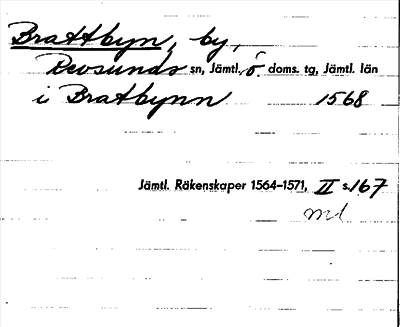 Brattbyn, by,
Revsunds sn, Jämtl. ö. doms. tg, Jämtl. län
i Bratbynn 1568
Jämtl. Räkenskaper 1564-1571, II s.167
md